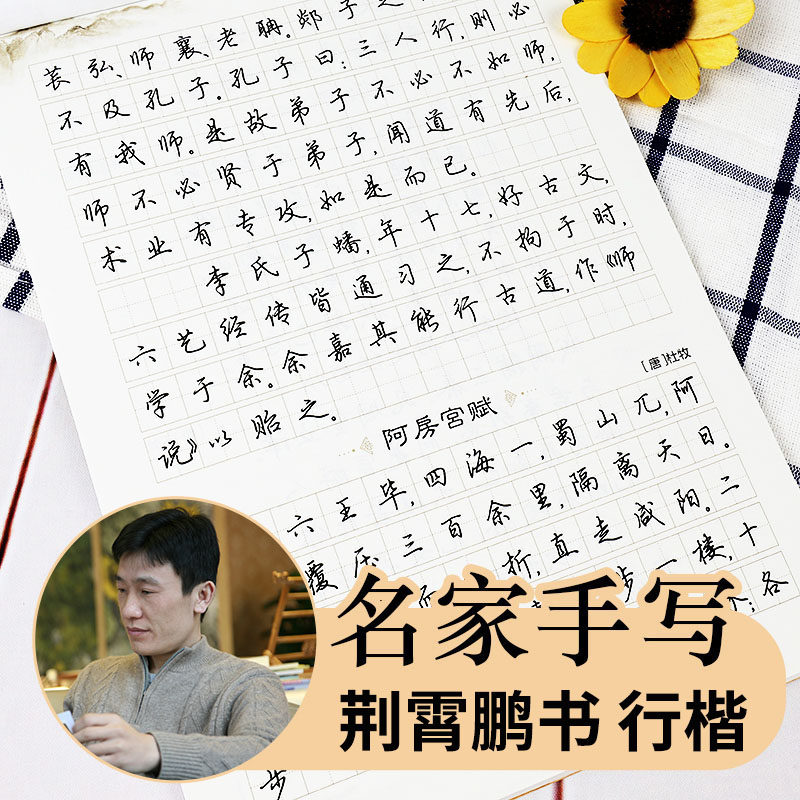 苌弘、师襄、老聃。郯子之
不及孔子。孔子曰：三人行，则必
有我师。是故弟子不必不如师，
师不必贤于弟子，闻道有先后，
术业有专攻，如是而已。
李氏子蟠，年十七，好古文，
六艺经传皆通习之，不拘于时，
学于余。余嘉其能行古道，作《师
说》以贻之。
阿房宫赋
[唐]杜牧
六王毕，四海一，蜀山兀，阿
覆压三百余里，隔离天日。
折，直走咸阳。二
步一楼，十
各
步
名家手写
荆霄鹏书 行楷